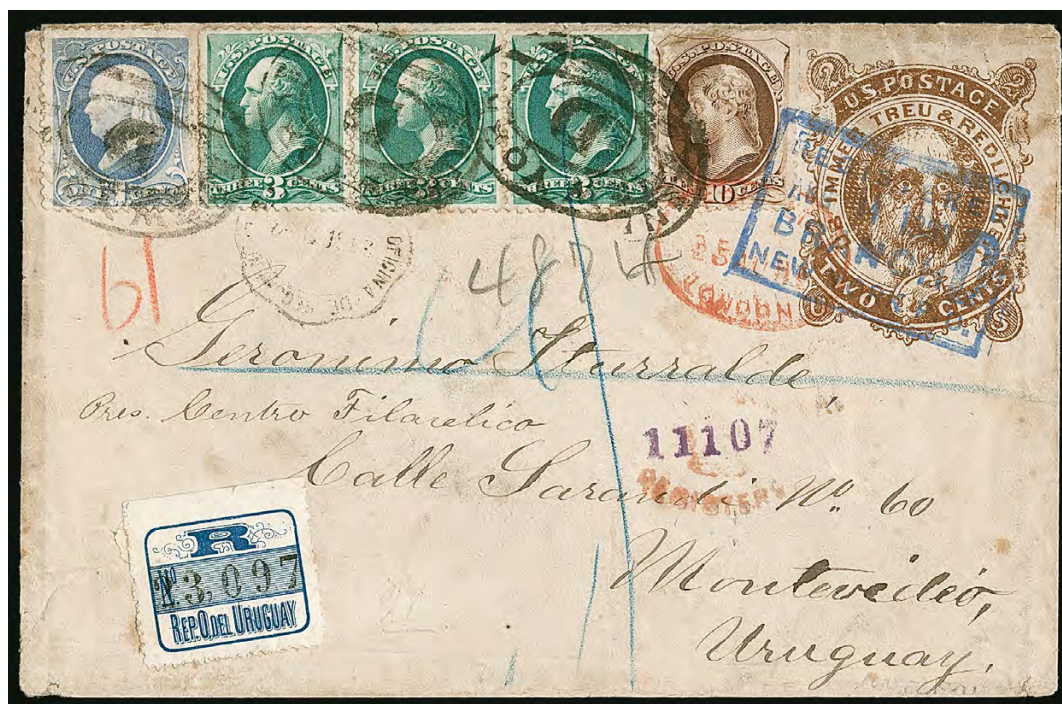 U.S. POSTAGE
ONE CENT
U.S. POSTAGE
THREE 3 CENTS
U.S. POSTAGE
THREE 3 CENTS
U.S. POSTAGE
THREE 3 CENTS
U.S. POSTAGE
TEN 10 CENTS
2 U.S. POSTAGE 2
IMMER TREU & REDLICH
TWO CENTS
BRANCH
NEW
LONDON
OFICINA DE
61
4874
Geronimo Iturralde
Pres. Centro Filatelico
11107
Calle Sarandi No. 60
Montevideo,
Uruguay.
R
No 3097
REP. O. DEL URUGUAY